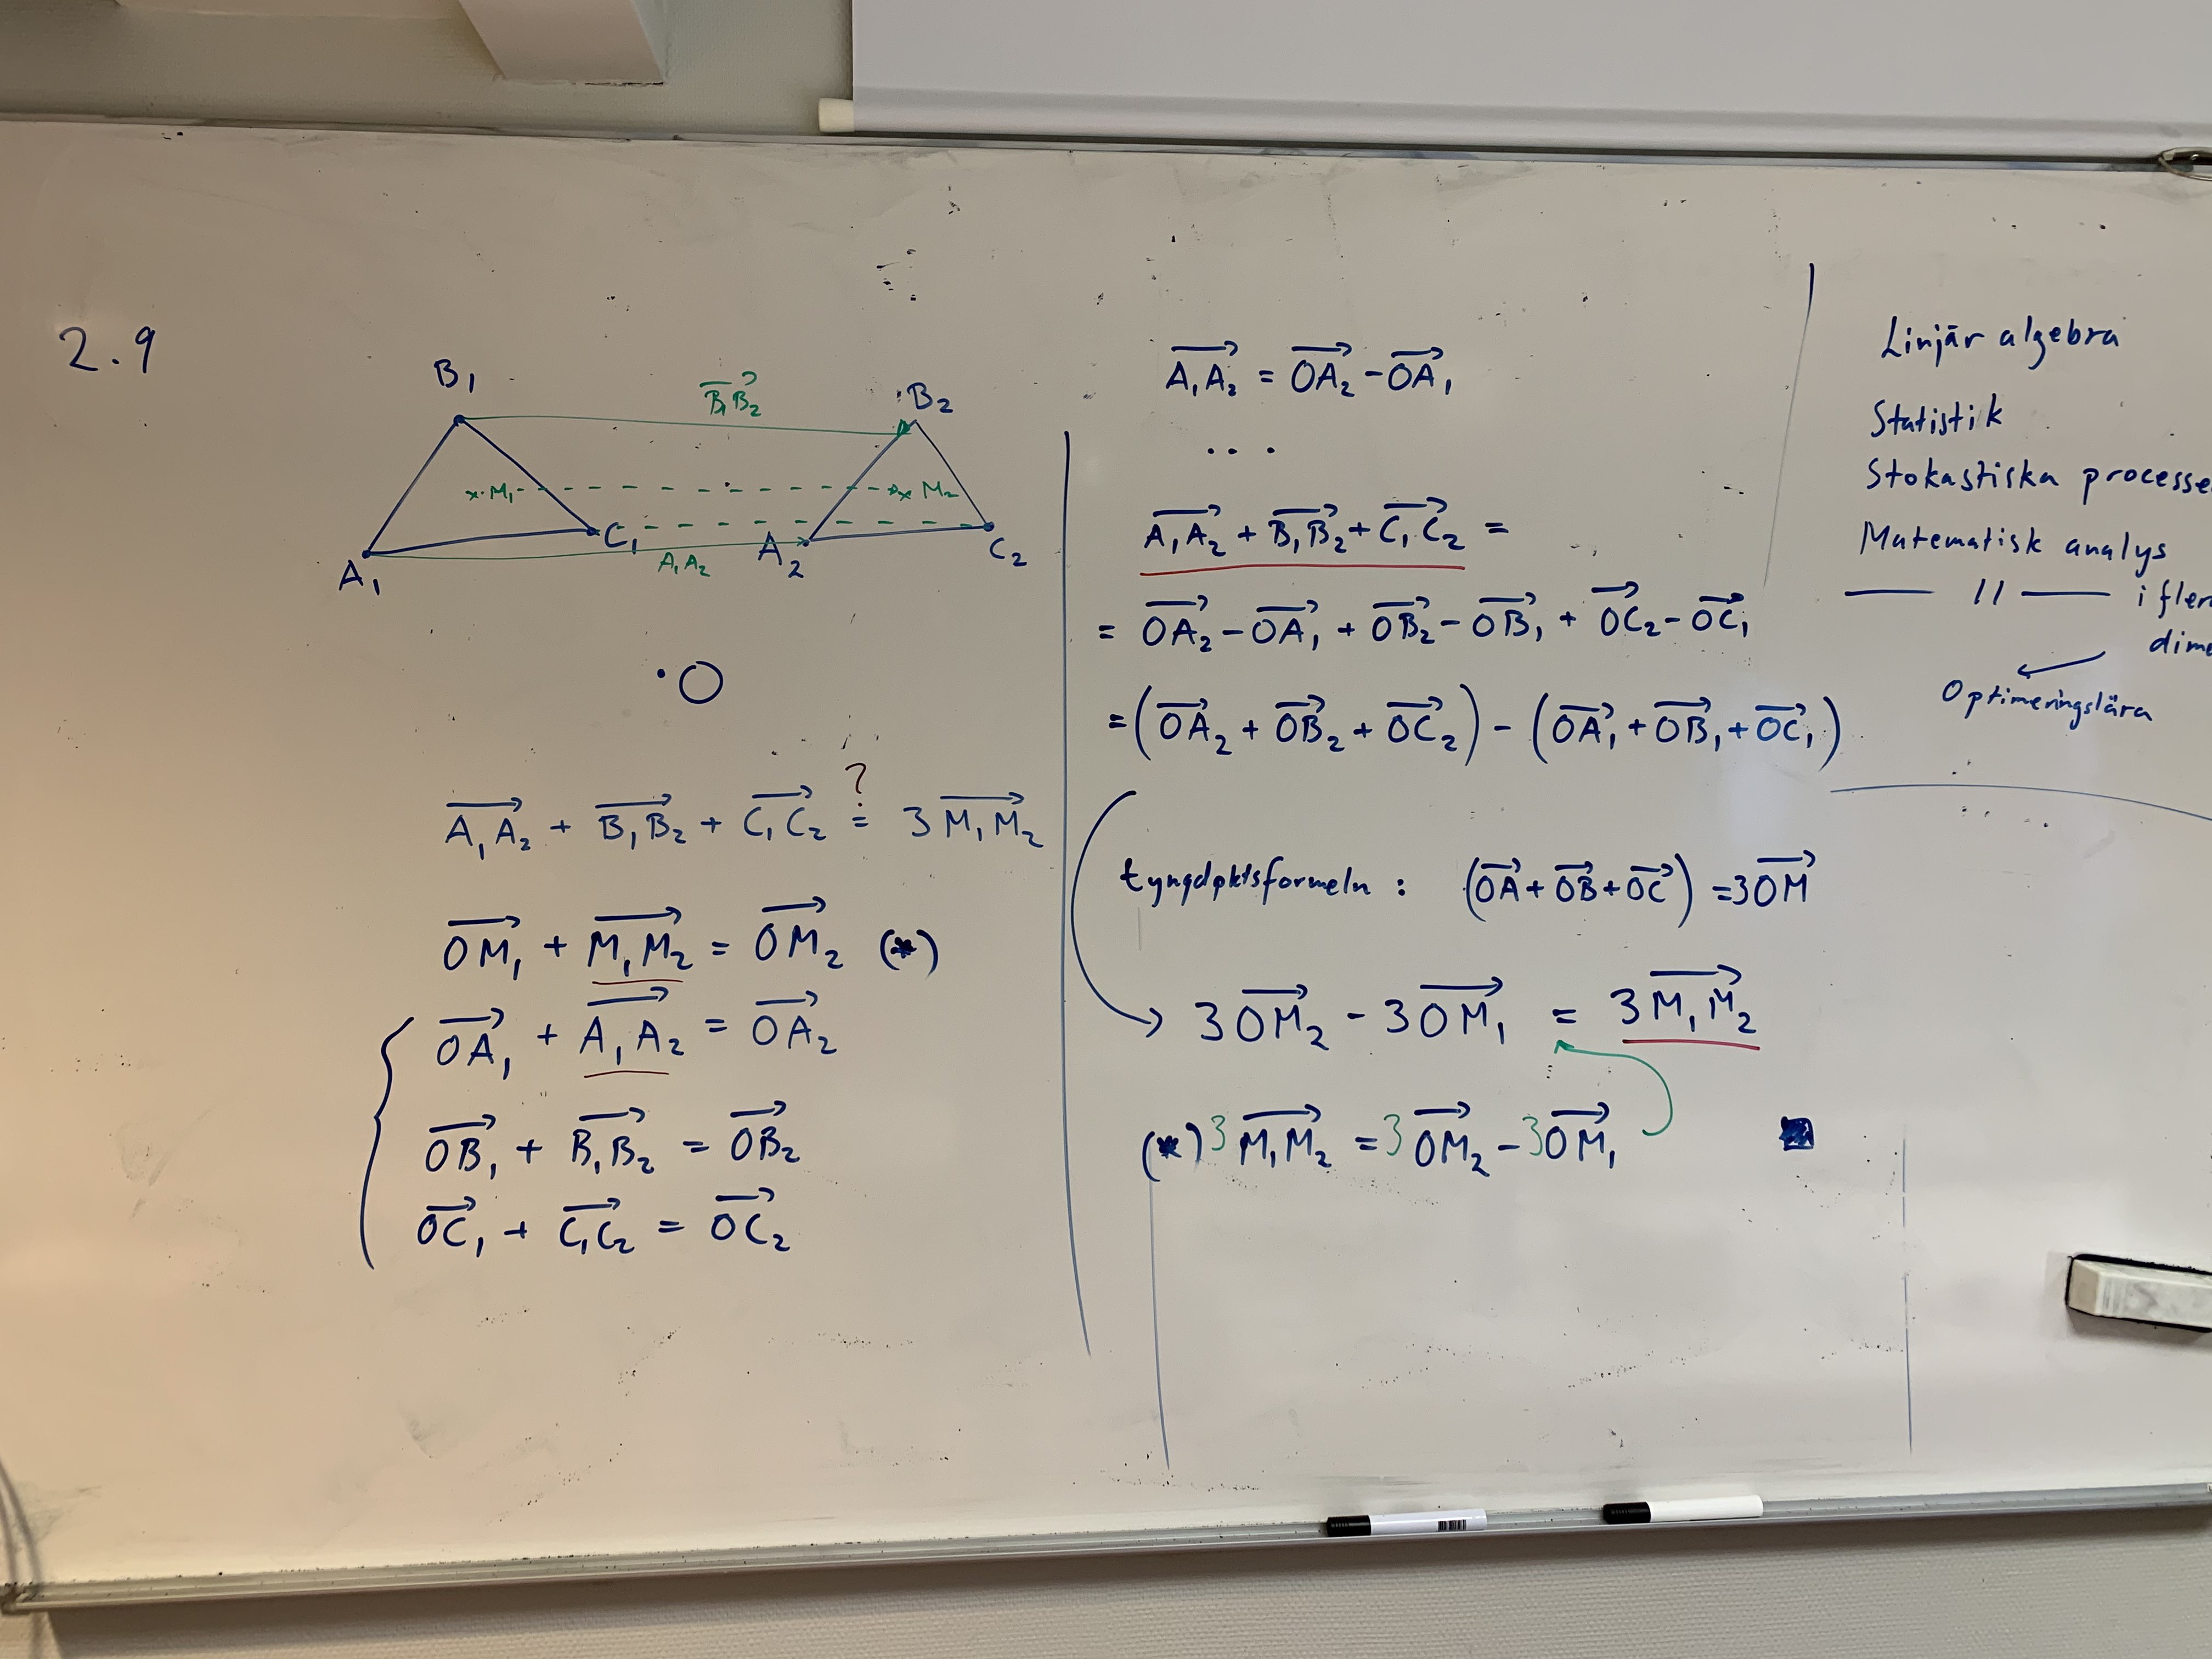 2.9
B₁
B₁B₂
B₂
M₁
M₂
A₁
C₁
A₁A₂
A₂
C₂
O
?
A₁A₂ + B₁B₂ + C₁C₂ = 3 M₁M₂
OM₁ + M₁M₂ = OM₂ (*)
OA₁ + A₁A₂ = OA₂
OB₁ + B₁B₂ = OB₂
OC₁ + C₁C₂ = OC₂
A₁A₂ = OA₂ - OA₁
...
A₁A₂ + B₁B₂ + C₁C₂ =
= OA₂ - OA₁ + OB₂ - OB₁ + OC₂ - OC₁
= (OA₂ + OB₂ + OC₂) - (OA₁ + OB₁ + OC₁)
tyngdpktsformeln : (OA + OB + OC) = 3OM
→ 3 OM₂ - 3 OM₁ = 3 M₁M₂
(*) 3 M₁M₂ = 3 OM₂ - 3 OM₁
Linjär algebra
Statistik
Stokastiska processe
Matematisk analys
— // — i fler
dime
Optimeringslära